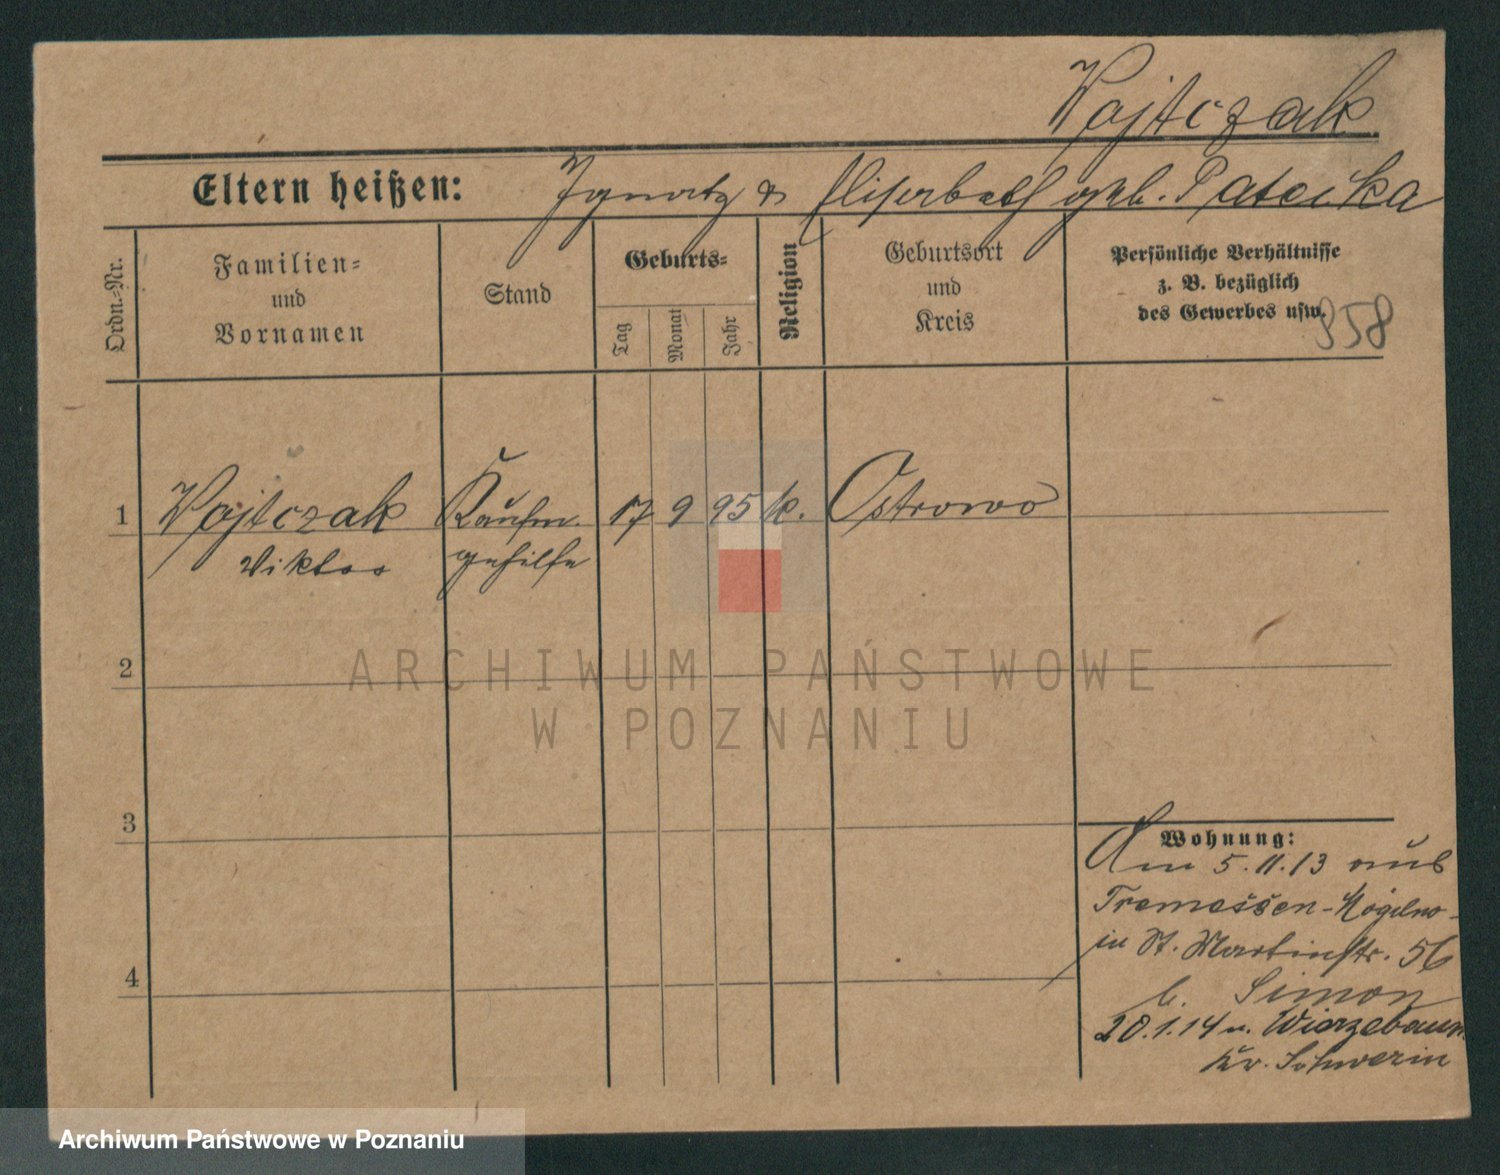 Wojtczak
Eltern heißen: Ignatz & Elisabeth geb. Patecka
Ordn.-Nr.
Familien-
und
Vornamen
Stand
Geburts-
Tag
Monat
Jahr
Religion
Geburtsort
und
Kreis
Persönliche Verhältnisse
z. B. bezüglich
des Gewerbes usw.
958
1 Wojtczak Kaufm. 17 9 95 k. Ostrowo
Viktor gehilfe
2
3
4
Wohnung:
Am 5.11.13 aus
Tremessen-Mogilno-
in St. Martinstr. 56
b. Simon
20.1.14 n. Wierzebaum
Kr. Schwerin
ARCHIWUM PAŃSTWOWE
W POZNANIU
Archiwum Państwowe w Poznaniu